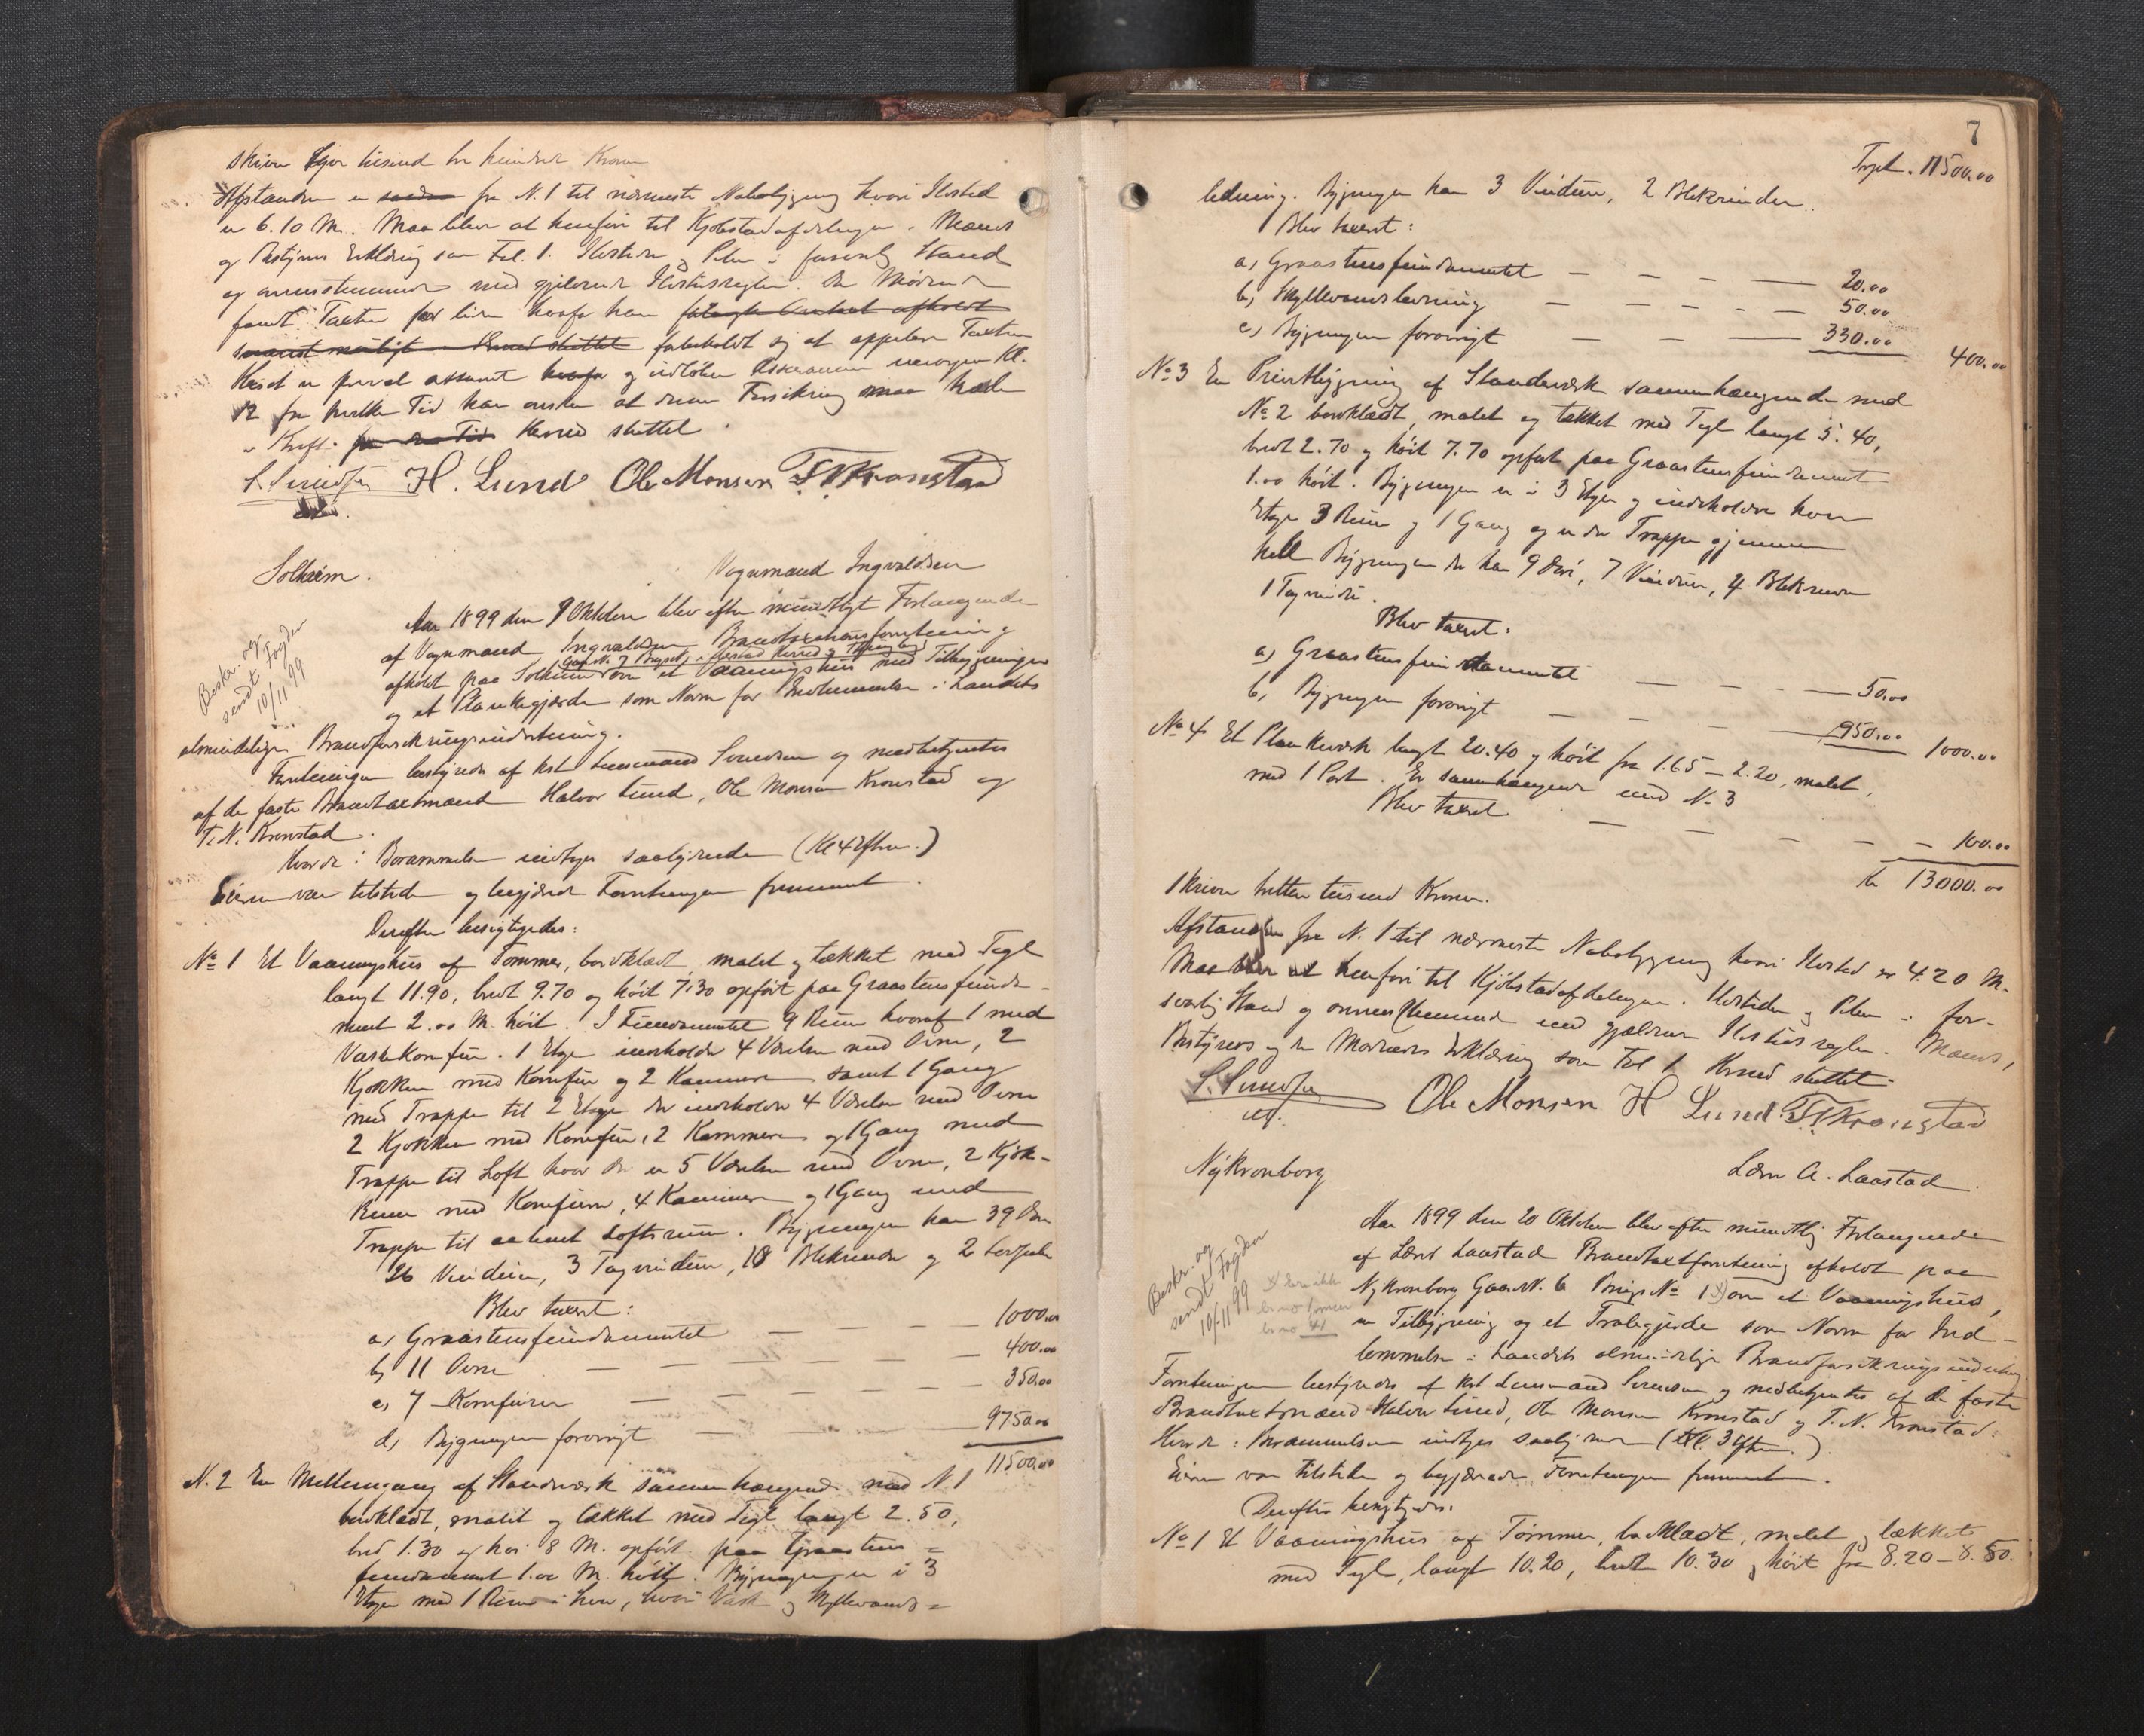 skiver fjor tusind tre hundrede Kroner
Afstanden er fra N. 1 til nærmeste Nabobygning hvori Ildsted
er 6.10 M. Maa blive at henføre til Kjøbstadafdelingen. Mænds
og Bestyrers Erklæring som Fol. 1. Ildsteder og Piber i forsvarlig Stand
og overensstemmende med gjeldende Ildstedsregler. De Mødende
fandt Taxten for liden hvorfor han
forbeholdt sig at appelere Taxten
Huset er privat assureret og udløber Assurancen imorgen Kl.
12 fra hvilken Tid han ønsker at denne Forsikring maa træde
i Kraft. Herved sluttet.
H. Lund Ole Monsen T N Kronstad
Solheim. Vognmand Ingvaldsen
Beskr. og
sendt Fogden
10/11 99
Aar 1899 den 9 Oktober blev efter mundtligt Forlangende
af Vognmand Ingvaldsen Brandtaxationsforretning
afholdt paa Solheim over et Vaaningshus med Tilbygninger
og et Plankegjærde som Norm for Indlemmelse i Landets
almindelige Brandforsikringsindretning.
Forretningen bestyredes af kst Lensmand Svendsen og medbetjentes
af de faste Brandtaxtmænd Halvor Lund, Ole Monsen Kronstad og
T. N. Kronstad.
Hvorda: Berammelsen indtages saalydende (Kl 4 Eftm.)
Eieren var tilstede og begjærede Forretningen fremmet.
Derefter besigtigedes:
No 1 Et Vaaningshus af Tømmer, bordklædt, malet og tækket med Tegl
langt 11.90, bredt 9.70 og høit 7.30 opført paa Graastensfunda-
ment 2.00 M. høit. I Fundamentet 9 Rum hvoraf 1 med
Vaskekomfur. 1 Etage indeholder 4 Værelser med Ovne, 2
Kjøkken med Komfur og 2 Kammere samt 1 Gang
med Trappe til 2 Etage der indeholder 4 Værelser med Ovne
2 Kjøkken med Komfur, 2 Kammere og 1 Gang med
Trappe til Loft hvor der er 5 Værelser med Ovne, 2 Kjøk-
kener med Komfurer, 4 Kammere og 1 Gang med
Trappe til aabent Loftsrum. Bygningen har 39 Døre
26 Vinduer, 3 Tagvinduer, 18 Blikrender og 2
Blev taxeret:
a) Graastensfundamentet — — — 1000.00
b) 11 Ovne — — — 400.00
c) 7 Komfurer — — — 350.00
d) Bygningen forøvrigt — — — 9750.00
11500.00
N. 2 En Mellemgang af Standværk sammenhængende med N 1
bordklædt, malet og tækket med Tegl langt 2.50,
bred 1.30 og høi 8 M. opført paa Graastens=
fundament 1.00 M. høit. Bygningen er i 3
Etager med 1 Rum i hver, hvori Vask og Skyllevands=
7
Trpt. 11500.00
ledning. Bygningen har 3 Vinduer, 2 Blikrender.
Blev taxeret:
a) Graastensfundamentet — — — 20.00
b) Skyllevandsledning — — — 50.00
c) Bygningen forøvrigt — — — 330.00
400.00
No 3 En Privetbygning af Standværk sammenhængende med
No 2 bordklædt, malet og tækket med Tegl langt 5.40,
bredt 2.70 og høit 7.70 opført paa Graastensfundament
1.00 høit. Bygningen er i 3 Etager og indeholder hver
Etage 3 Rum og 1 Gang og er der Trappe gjennem
hele Bygningen der har 9 Døre, 7 Vinduer, 4 Blikrender
1 Tagvindu.
Blev taxeret:
a) Graastensfundamentet — — — 50.00
b) Bygningen forøvrigt — — — 950.00 1000.00
No 4 Et Plankeværk langt 20.40 og høit fra 1.65 – 2.20, malet,
med 1 Port. Er sammenhængende med No 3
Blev taxeret — — — 100.00
Kr 13000.00
skriver tretten tusend Kroner.
Afstanden fra N. 1 til nærmeste Nabobygning hvori Ildsted er 4.20 M.
Maa blive at henføre til Kjøbstadafdelingen. Ildsteder og Piber i for-
svarlig Stand og overensstemmende med gjældende Ildstedsregler. Mænds,
Bestyrers og de Mødendes Erklæring som Fol 1. Herved sluttet.
Ole Monsen H Lund T N Kronstad
Nykronborg Lærer A. Laastad.
Beskr. og
sendt Fogden
10/11 99
Aar 1899 den 20 Oktober blev efter mundtlig Forlangende
af Lærer Laastad Brandtaxtforretning afholdt paa
Nykronborg Gaards N. 6 Brugs No 1 over et Vaaningshus,
en Tilbygning og et Tralegjerde som Norm for Ind-
lemmelse i Landets almindelige Brandforsikringsindretning
Forretningen bestyredes af kst Lensmand Svendsen og medbetjentes af de faste
Brandtaxtmænd Halvor Lund, Ole Monsen Kronstad og T. N. Kronstad.
Hvorda: Berammelsen indtages saalydende (Kl. 3 Eftm.)
Eieren var tilstede og begjærede Forretningen fremmet.
Derefter besigtigedes:
No 1 Et Vaaningshus af Tømmer, bordklædt, malet og tækket
med Tegl, langt 10.20, bredt 10.30 og høit fra 8.20 – 8.50.